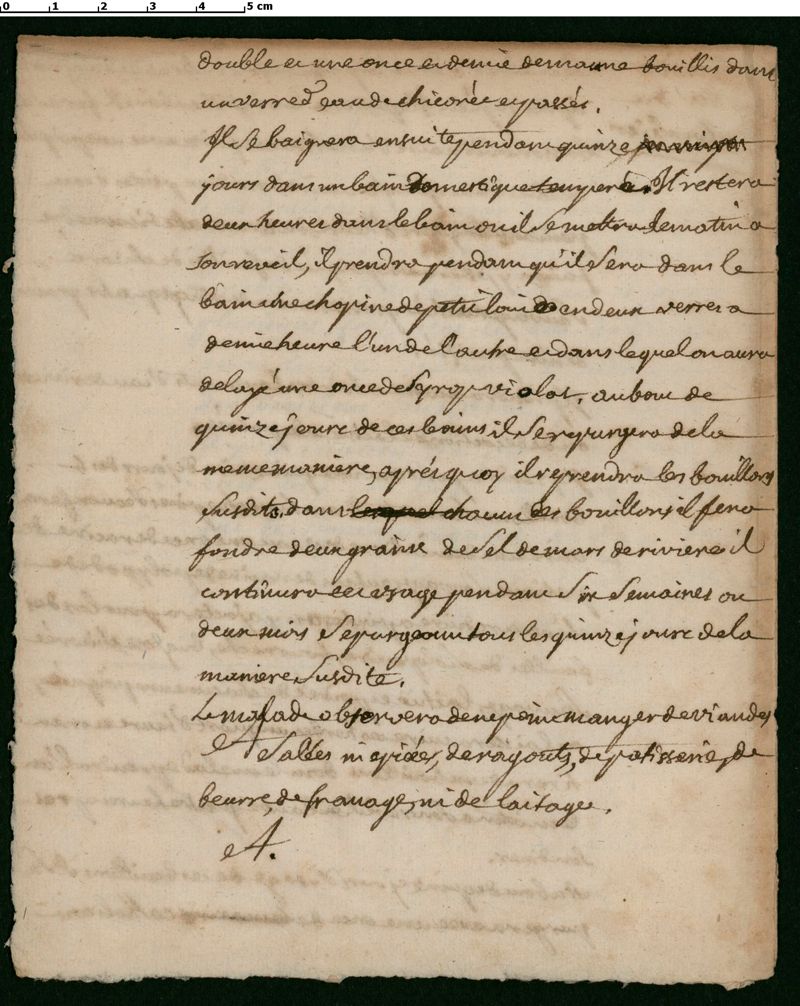 0 1 2 3 4 5 cm
double et une once et demie de manne bouillis dans
un verre d'eau de chicorée et passés.
Il se baignera ensuite pendant quinze
jours dans un bain domestique temperé. Il restera
deux heures dans le bain ou il se mettra le matin a
son reveil, il prendra pendant qu'il sera dans le
bain une chopine de petit lait en deux verres a
demie heure l'un de l'autre et dans lequel on aura
delayé une once de syrop violat, au bout de
quinze jours de ces bains il se repurgera de la
meme maniere, aprés quoy il reprendra les bouillons
susdits, dans lesquel chacun des bouillons il fera
fondre deux grains de sel de mars de riviere il
continura cet usage pendant six semaines ou
deux mois se purgeant tous les quinze jours de la
maniere susdite.
Le malade observera de ne point manger de viandes
et salées ni epicées, de ragouts, de patisserie, de
beurre, de fromage, ni de laitage.